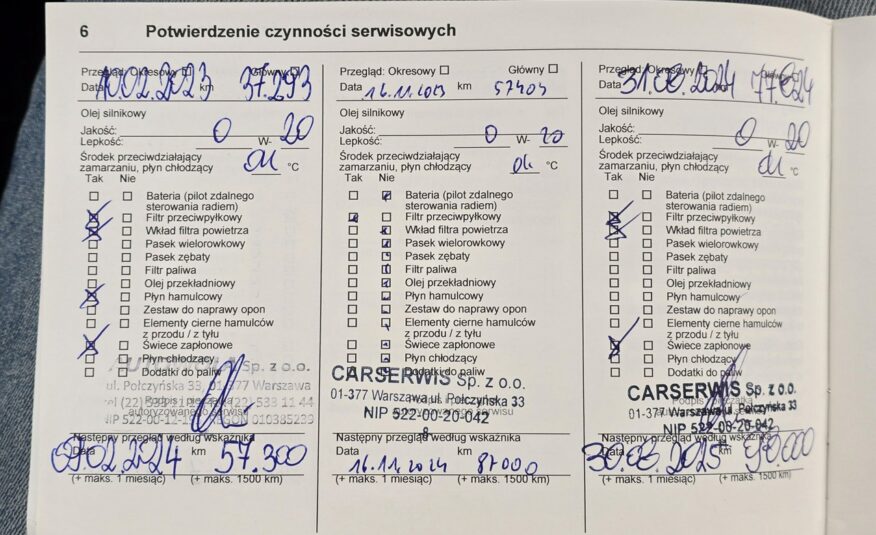 6 Potwierdzenie czynności serwisowych
Przegląd: Okresowy Główny
Data 10.02.2023 km 37.293
Olej silnikowy
Jakość:
Lepkość: 0 W- 20
Środek przeciwdziałający
zamarzaniu, płyn chłodzący ok °C
Tak Nie
Bateria (pilot zdalnego
sterowania radiem)
Filtr przeciwpyłkowy
Wkład filtra powietrza
Pasek wielorowkowy
Pasek zębaty
Filtr paliwa
Olej przekładniowy
Płyn hamulcowy
Zestaw do naprawy opon
Elementy cierne hamulców
z przodu / z tyłu
Świece zapłonowe
Płyn chłodzący
Dodatki do paliw
Sp. z o.o.
ul. Połczyńska 33, 01-377 Warszawa
Podpis i pieczątka
autoryzowanego serwisu
Następny przegląd według wskaźnika
Data 09.02.2024 km 57.300
(+ maks. 1 miesiąc) (+ maks. 1500 km)
Przegląd: Okresowy Główny
Data 16.11.2023 km 57403
Olej silnikowy
Jakość:
Lepkość: 0 W- 20
Środek przeciwdziałający
zamarzaniu, płyn chłodzący ok °C
Tak Nie
Bateria (pilot zdalnego
sterowania radiem)
Filtr przeciwpyłkowy
Wkład filtra powietrza
Pasek wielorowkowy
Pasek zębaty
Filtr paliwa
Olej przekładniowy
Płyn hamulcowy
Zestaw do naprawy opon
Elementy cierne hamulców
z przodu / z tyłu
Świece zapłonowe
Płyn chłodzący
Dodatki do paliw
CARSERWIS Sp. z o.o.
01-377 Warszawa ul. Połczyńska 33
NIP 522-00-20-042
8
Następny przegląd według wskaźnika
Data 16.11.2024 km 87000
(+ maks. 1 miesiąc) (+ maks. 1500 km)
Przegląd: Okresowy Główny
Data km
Olej silnikowy
Jakość:
Lepkość: 0 W- 20
Środek przeciwdziałający
zamarzaniu, płyn chłodzący ok °C
Tak Nie
Bateria (pilot zdalnego
sterowania radiem)
Filtr przeciwpyłkowy
Wkład filtra powietrza
Pasek wielorowkowy
Pasek zębaty
Filtr paliwa
Olej przekładniowy
Płyn hamulcowy
Zestaw do naprawy opon
Elementy cierne hamulców
z przodu / z tyłu
Świece zapłonowe
Płyn chłodzący
Dodatki do paliw
CARSERWIS Sp. z o.o.
01-377 Warszawa ul. Połczyńska 33
NIP 522-00-20-042
Następny przegląd według wskaźnika
Data km
(+ maks. 1 miesiąc) (+ maks. 1500 km)